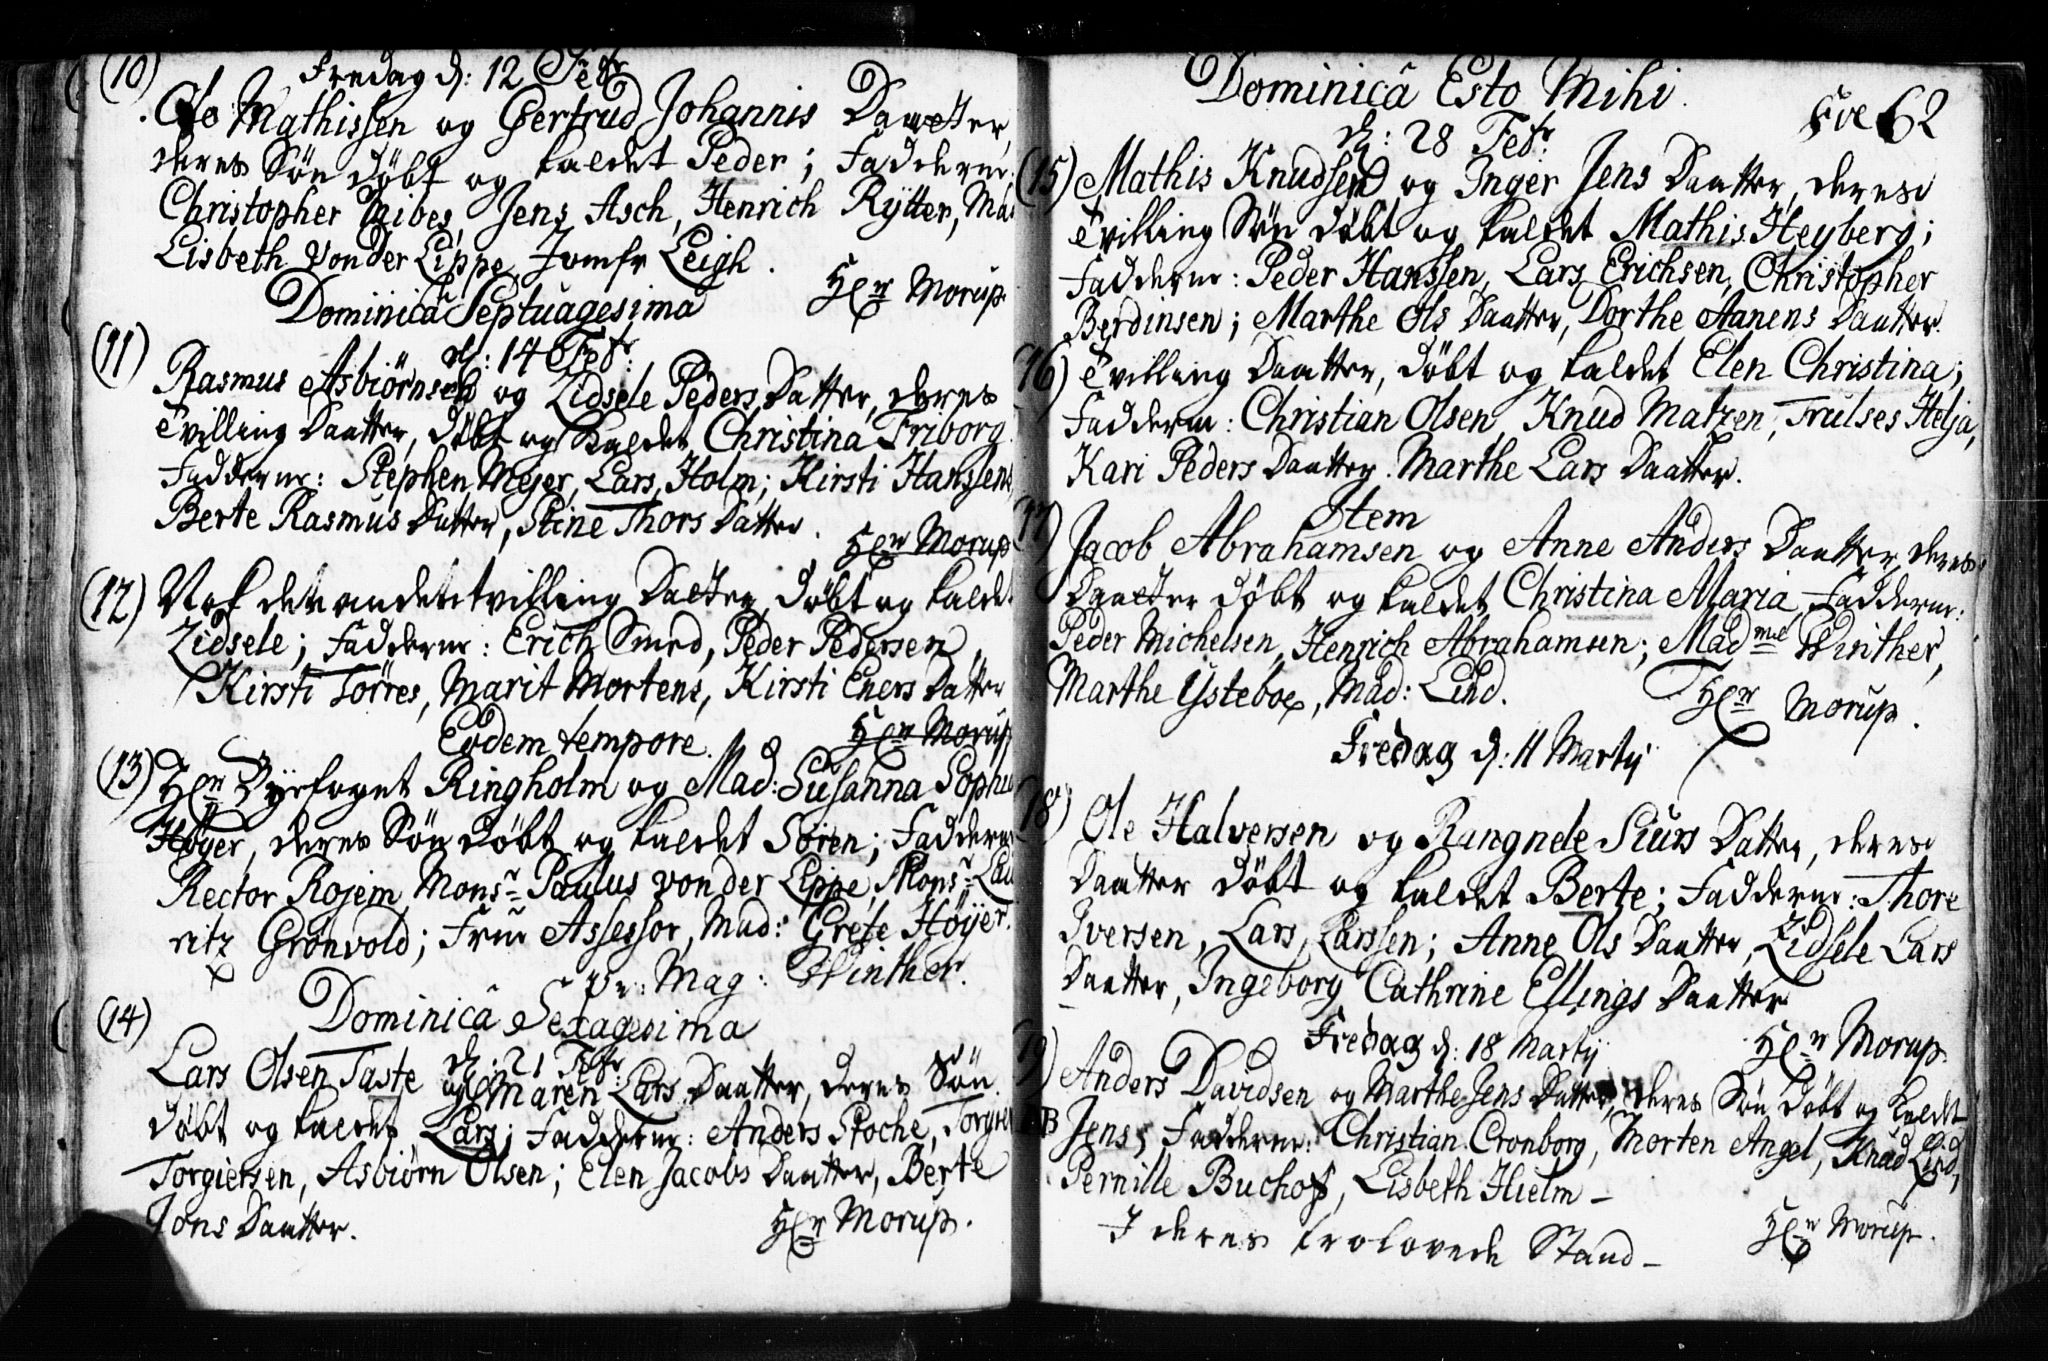 (10) Fredag d: 12 Febr
Ole Mathissen og Giertrud Johannis Daatter
deres Søn døbt og kaldet Peder; Fadderne:
Christopher Nibes, Jens Asch, Henrich Rytter, Mad
Lisbeth Von der Lippe, Jomfr Leigh.
Hr Morup.
Dominica Septuagesima
d: 14 Febr:
(11) Rasmus Asbiørnsen og Zidsele Peders Datter, deres
Tvilling Daatter, døbt og kaldet Christina Friborg.
Fadderne: Stephen Mejer, Lars Holm; Kirsti Hanssens
Berte Rasmus Datter, Stine Thors Datter.
Hr Morup
(12) Nok det andet tvilling Datter, døbt og kaldet
Zidsele; Fadderne: Erich Smed, Peder Pedersen,
Kirsti Torres, Marit Mortens, Kirsti Eners Datter
Hr Morup
Eodem tempore.
(13) Hr Byefoget Ringholm og Mad: Susanna Sophia
Høyer, deres Søn døbt og kaldet Søren; Fadderne
Rector Rojem, Monsr Paulus von der Lippe, Monsr Lau
ritz Gronvold; Frue Assessor, Mad: Grete Høyer.
Pr: Mag: Winther.
Dominica Sexagesima
d: 21 Febr:
(14) Lars Olsen Taste og Maren Lars Daatter, deres Søn
døbt og kaldet Lars; Fadderne: Anders Stoche, Torgier
Torgiersen, Asbiørn Olsen; Elen Jacobs Daatter, Berte
Jons Daatter.
Hr Morup.
Dominica Esto Mihi.
62
d: 28 Febr.
(15) Mathis Knudsen og Inger Jens Daatter, deres
Tvilling Søn døbt og kaldet Mathis Heyberg;
Fadderne: Peder Hanssen, Lars Erichsen, Christopher
Berdinsen; Marthe Ols Daatter, Dorthe Aanens Daatter.
16) Tvilling Daatter, døbt og kaldet Elen Christina;
Fadderne: Christian Olsen, Knud Matzen, Trulses Helja,
Kari Peders Daatter, Marthe Lars Daatter.
Item
17) Jacob Abrahamsen og Anne Anders Daatter, deres
Daatter døbt og kaldet Christina Maria, Fadderne:
Peder Michelsen, Henrich Abrahamsen; Madme Winther,
Marthe Ysteboe, Mad: Lind.
Hr Morup.
Fredag d: 11 Martij
18) Ole Halversen og Rangnele Siurs Datter, deres
Daatter døbt og kaldet Berte; Fadderne: Thore
Iversen, Lars Larssen; Anne Ols Daatter, Zidsele Lars
Daatter, Ingeborg Cathrine Ellings Daatter
Hr Morup.
Fredag d: 18 Martij
19) Anders Davidsen og Marthe Jens Datter, deres Søn døbt og kaldet
NB Jens, Fadderne: Christian Cronborg, Morten Angel, Knud Lind,
Pernille Buchof, Lisbeth Hielm -
Hr Morup.
I deres trolovede Stand -